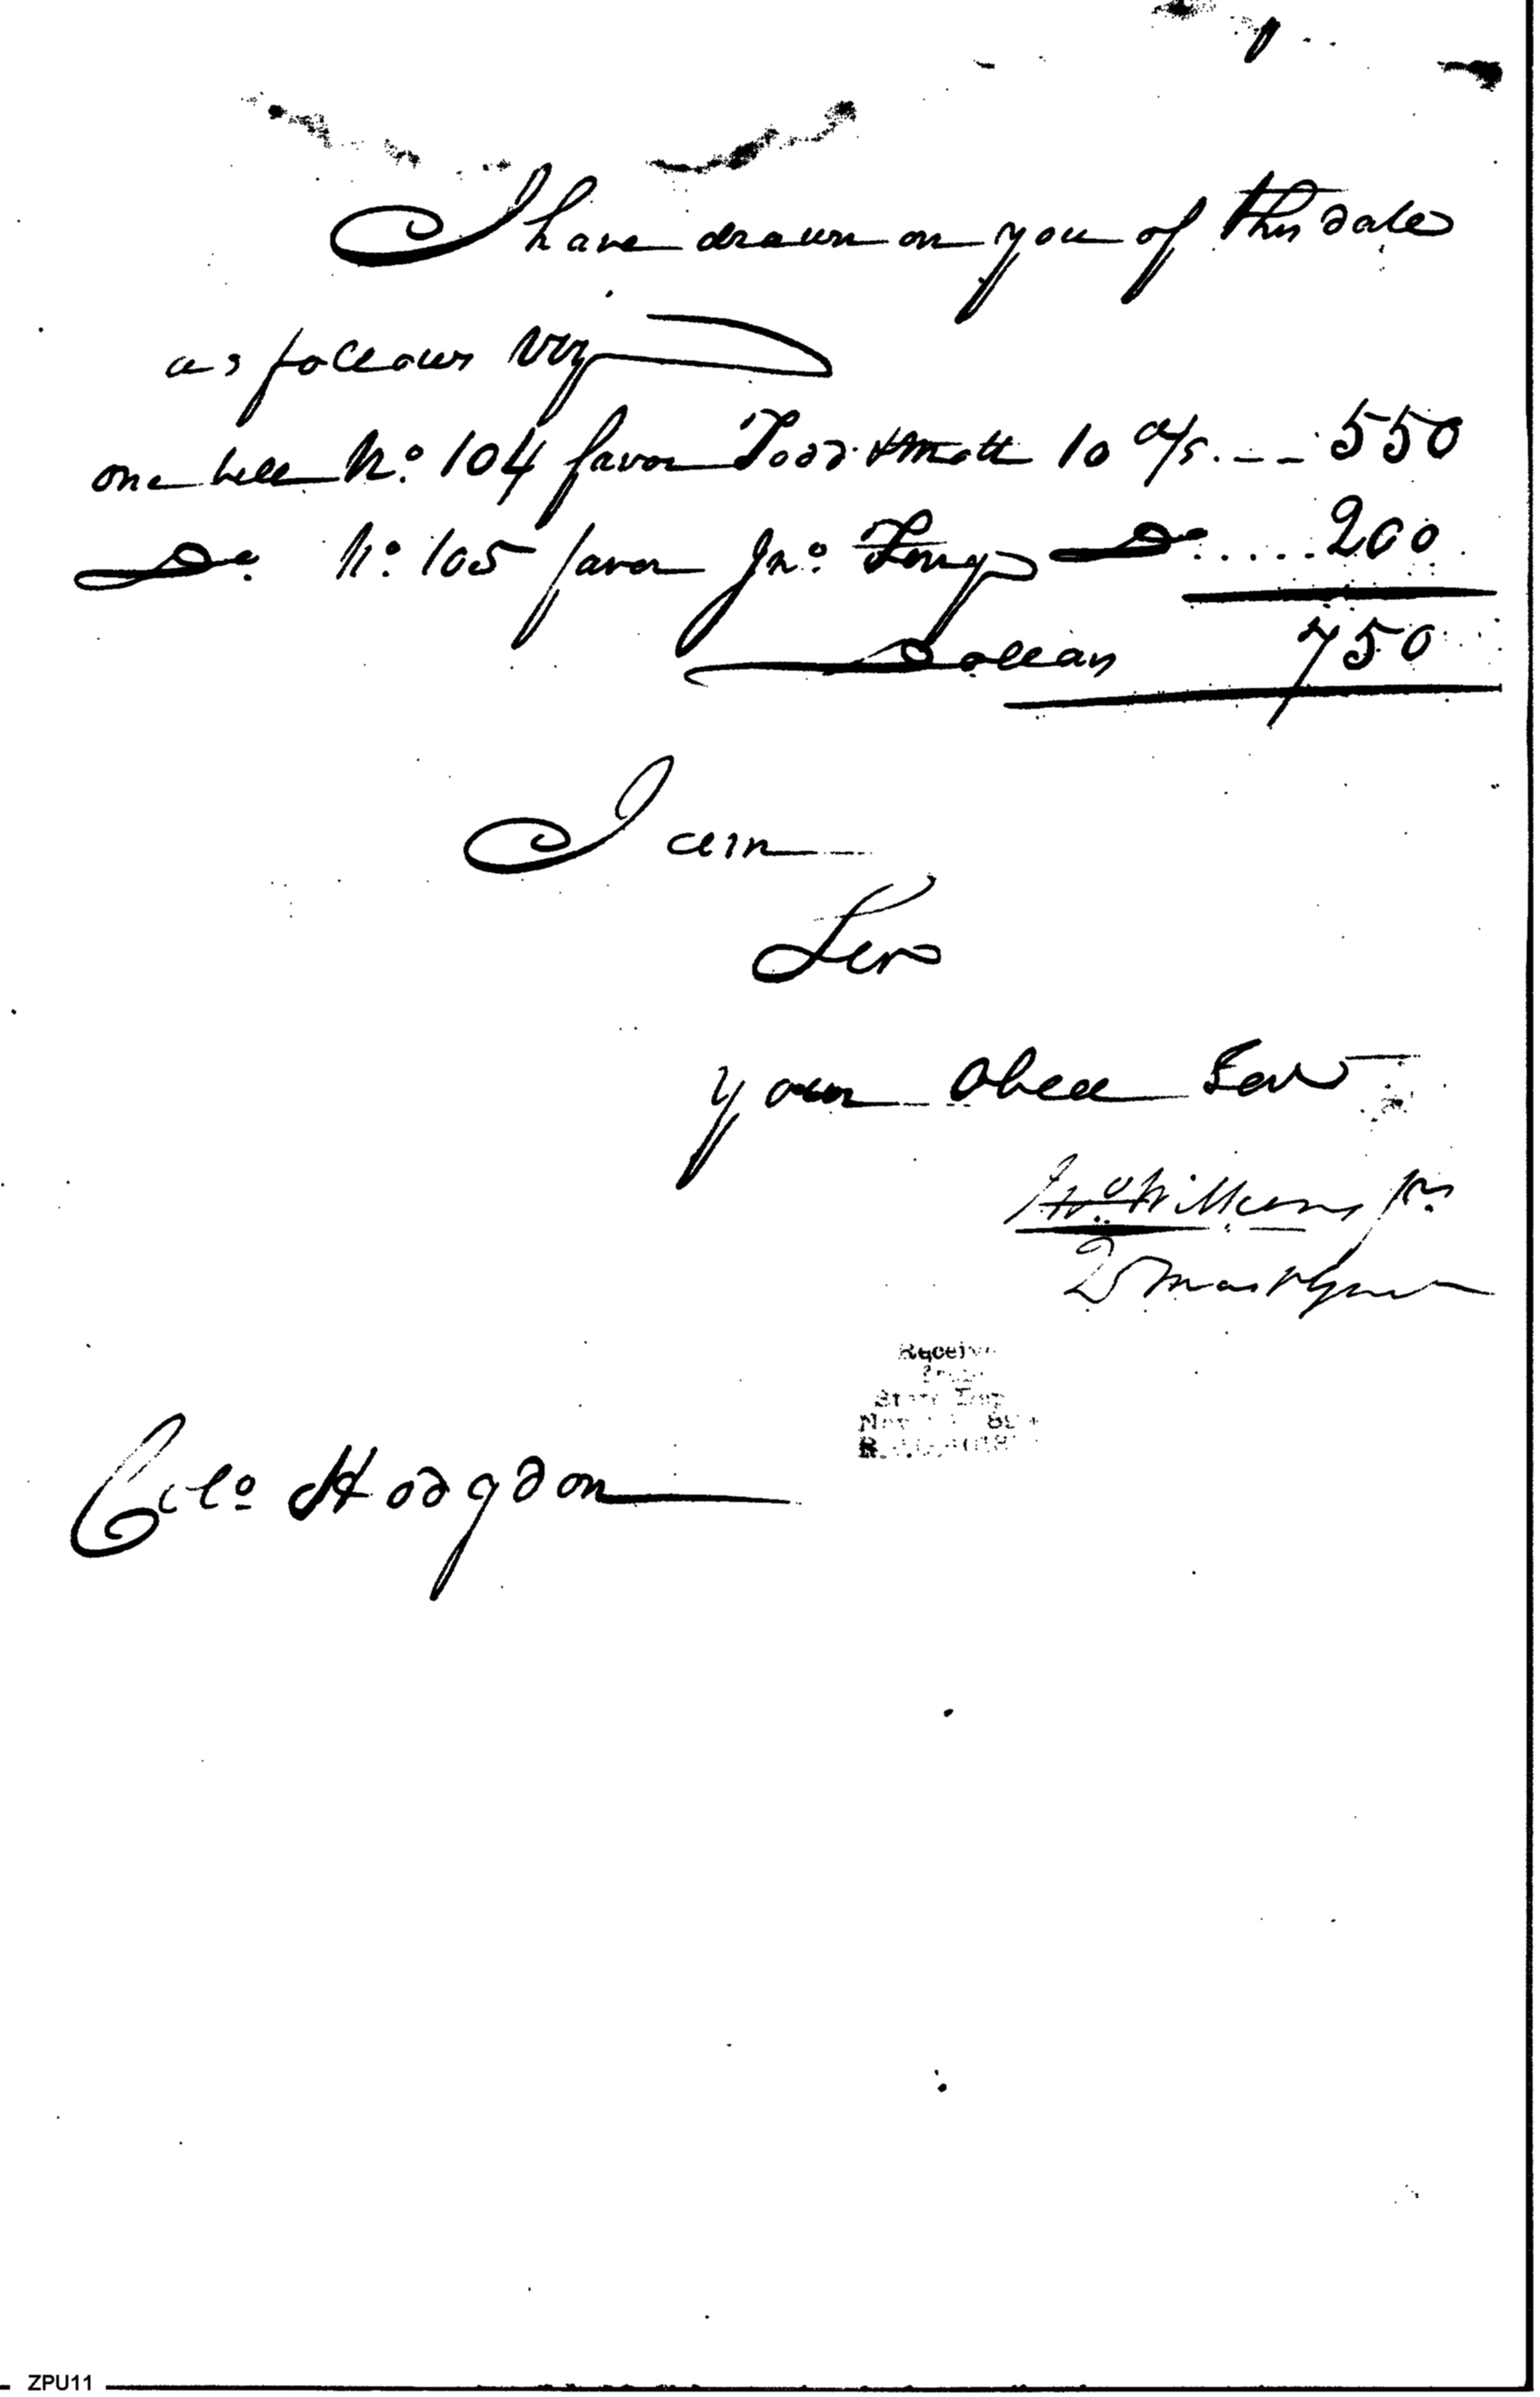 I have drawn on you of this date
as follows viz
one bill No. 104 favor Todd & Mott 10 d/s. --- 550
Do. No. 105 favor Jno. Long Do. ..... 200
Dollars 750
I am
Sir
your Obed Sert
Jno Wilkins Jr
Qr Mas Genl
Receive
Colo Hodgdon
ZPU11